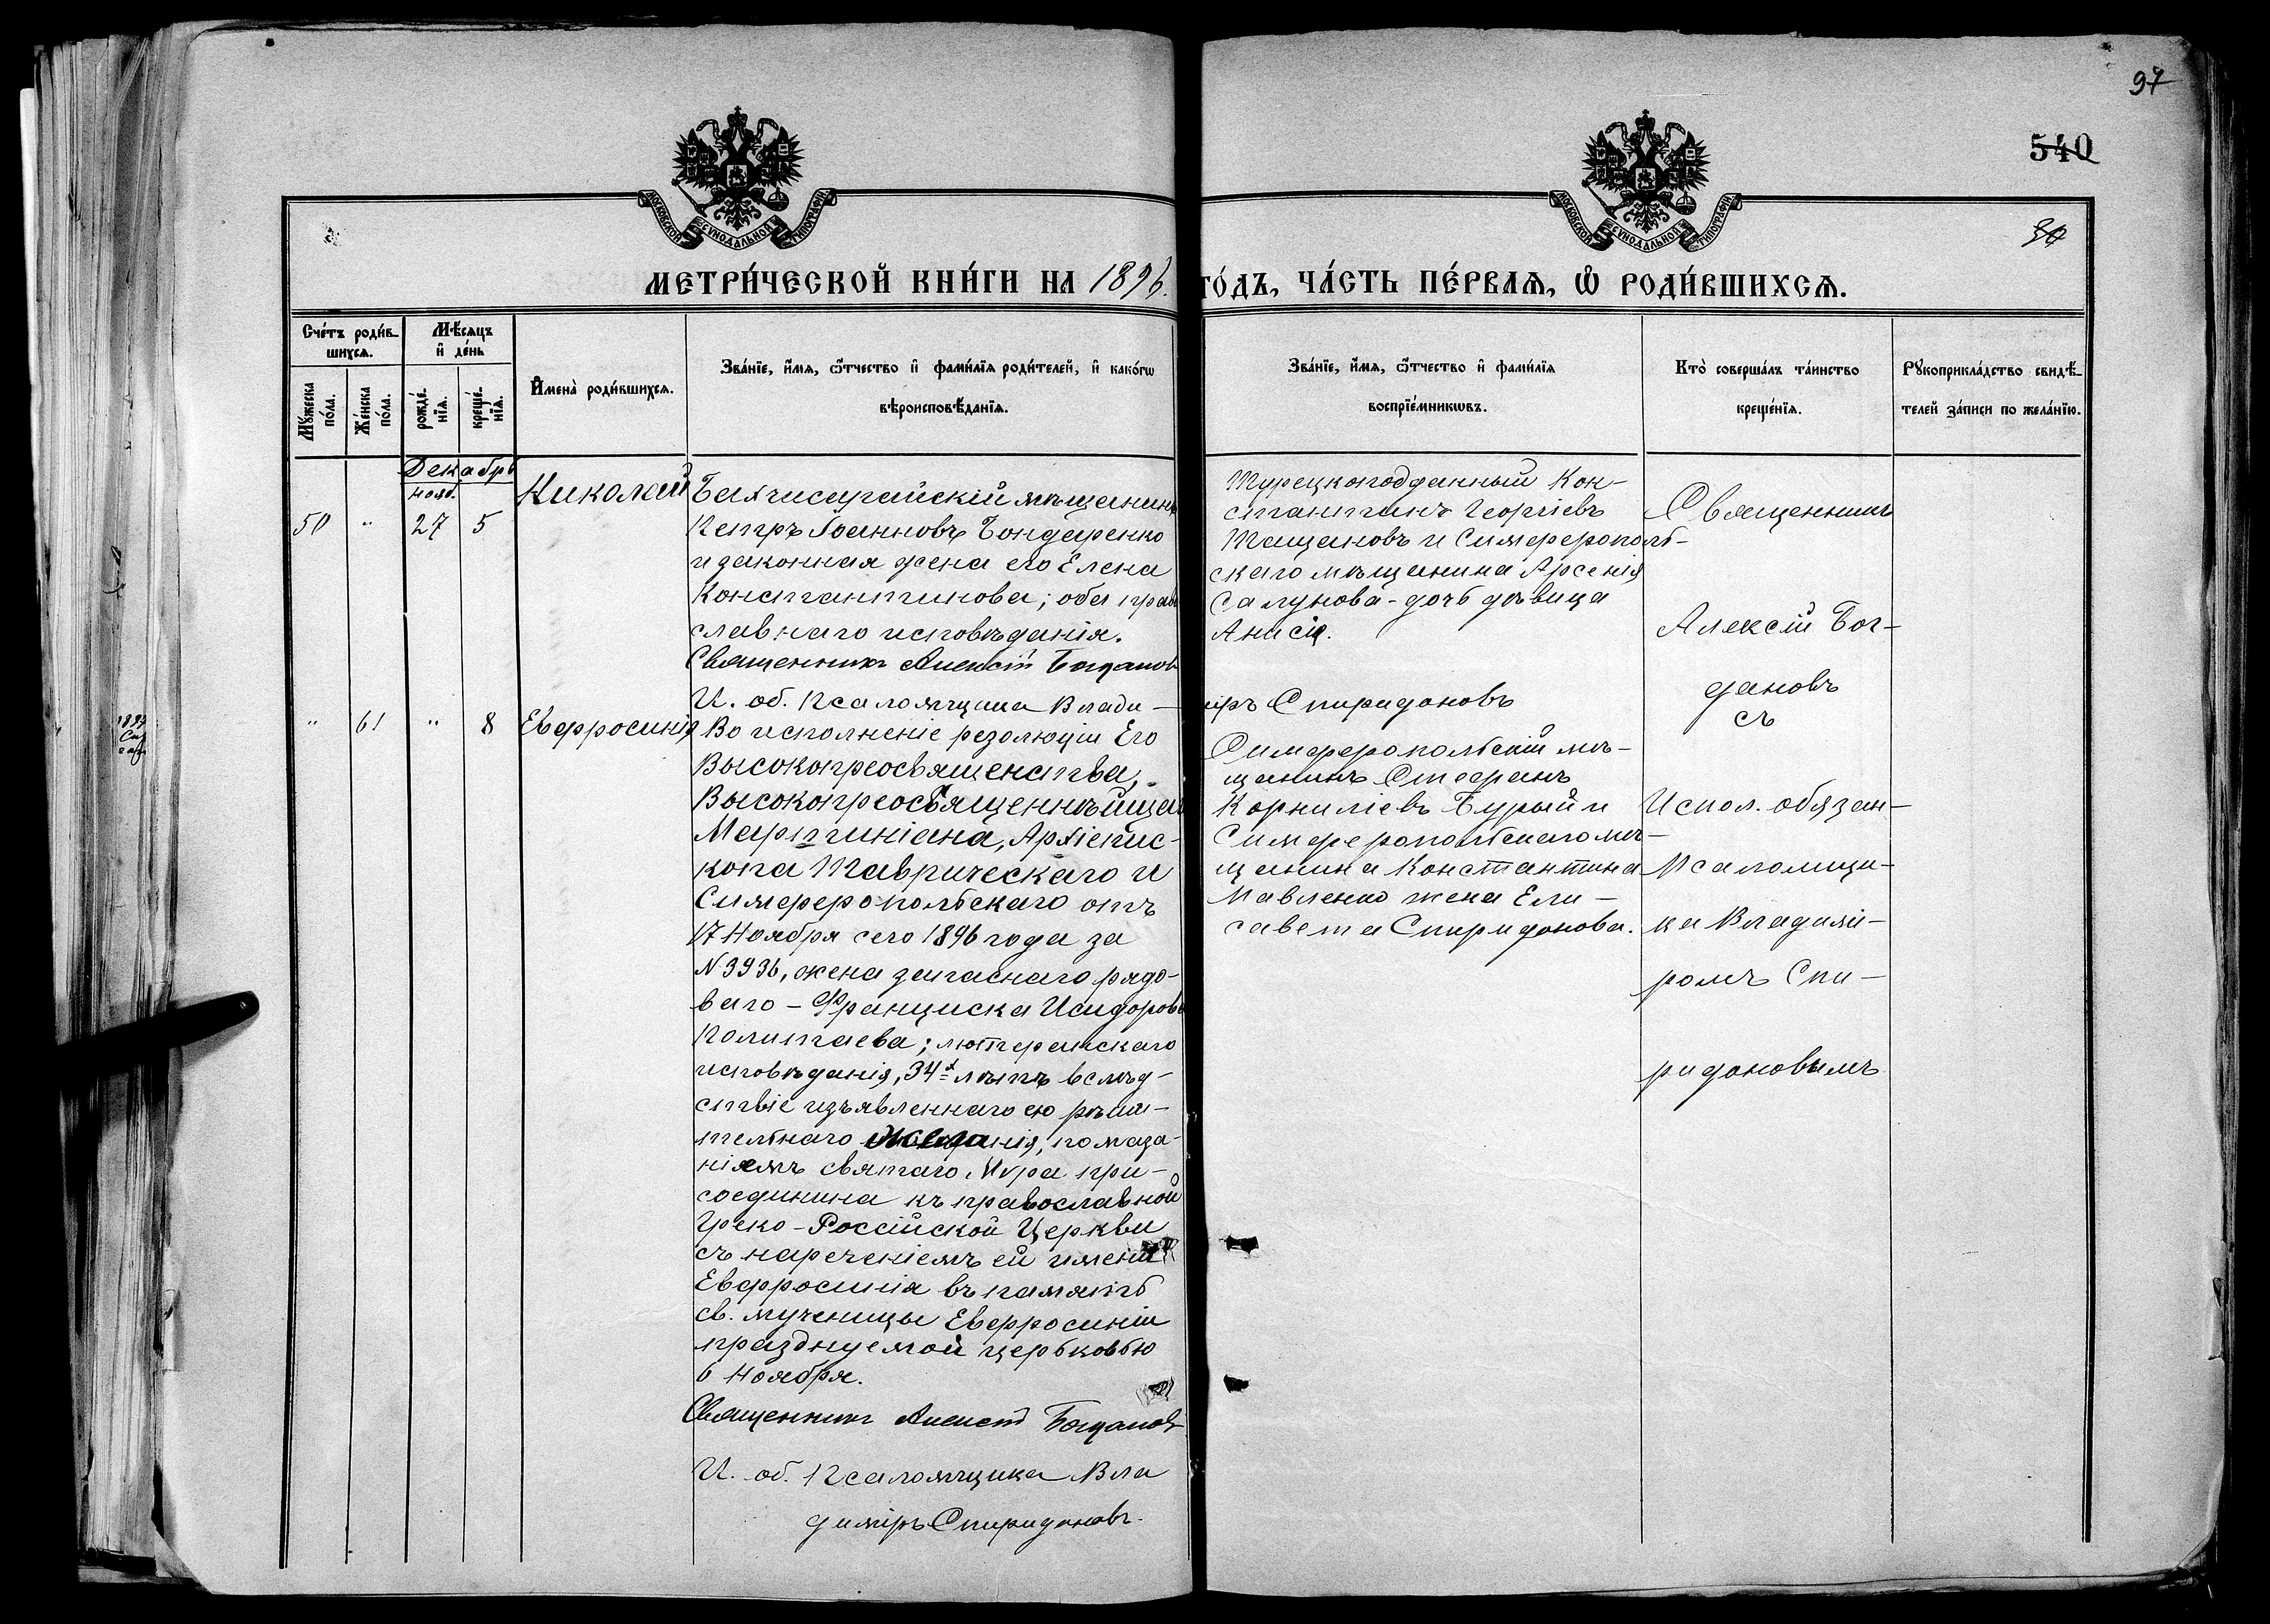 97
540
30
МОСКОВСКОЙ СѴНОДАЛЬНОЙ ТИПОГРАФІИ
МОСКОВСКОЙ СѴНОДАЛЬНОЙ ТИПОГРАФІИ
МЕТРИ́ЧЕСКОЙ КНИ́ГИ НА 1896.
ГО́ДЪ, ЧА́СТЬ ПЕ́РВАѦ, Ѽ РОДИ́ВШИХСѦ.
Сче́тъ роди́в-
шихсѧ.
Мѣ́сѧцъ
и҆ де́нь
Мꙋ́жеска
по́ла.
Же́нска
по́ла.
рожде́-
нїѧ.
креще́-
нїѧ.
И҆мена̀ роди́вшихсѧ.
Зва́нїе, и҆́мѧ, ѻ҆́тчество и҆ фами́лїѧ роди́телей, и҆ како́гѡ
вѣроисповѣ́данїѧ.
Зва́нїе, и҆́мѧ, ѻ҆́тчество и҆ фами́лїѧ
воспрїе́мникѡвъ.
Кто̀ соверша́лъ та́инство
креще́нїѧ.
Рꙋкоприкла́дство свидѣ́-
телей за́писи по жела́нїю.
Декабрь
нояб.
50 " 27 5
Николай
Бахчисарайскій мѣщанинъ
Петръ Іоанновъ Бондаренко
и законная жена его Елена
Константинова; оба право
славнаго исповѣданія.
Священникъ Алексій Богдановъ
И. об. Псаломщика Влади-
міръ Спиридоновъ
Турецкоподданный Кон-
стантинъ Георгіевъ
Тащановъ и Симферополь-
скаго мѣщанина Арсенія
Салунова - дочь дѣвица
Анисія.
Священникъ
Алексій Бог-
дановъ
съ
Испол. обязан-
Псаломщи-
ка Владимі-
ромъ Спи-
ридоновымъ
" 61 " 8
Евфросинія
Во исполненіе резолюціи Его
Высокопреосвященства,
Высокопреосвященнѣйша
Мартиніана, Архіепис-
копа Таврическаго и
Симферопольскаго отъ
17 Ноября сего 1896 года за
N 3936, жена запаснаго рядо-
ваго - Франциска Исидорова
Политаева; лютеранскаго
исповѣданія, 34х лѣтъ вслѣд-
ствіе изъявленнаго ею рѣши-
тельнаго желанія, помаза-
ніемъ святаго Мѵра при-
соединина къ православной
Греко-Россійской Церкви
съ нареченіемъ ей имени
Евфросинія въ память
св. мученицы Евфросиніи
празднуемой церьковью
6 Ноября.
Священникъ Алексій Богдановъ
И. об. Псаломщика Вла
диміръ Спиридоновъ.
Симферопольскій мѣ-
щанинъ Стефанъ
Корниліевъ Бурый и
Симферопольскаго мѣ-
щанина Константина
Павленко жена Ели-
савета Спиридонова.